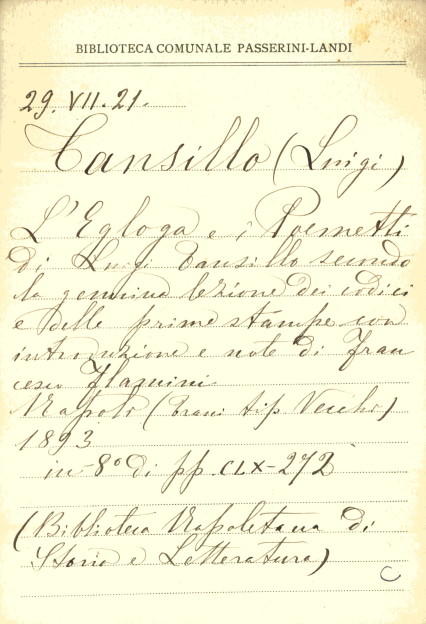 BIBLIOTECA COMUNALE PASSERINI-LANDI
29. VII. 21.
Tansillo (Luigi)
L'Egloga e i Poemetti
di Luigi Tansillo secondo
la genuina lezione dei codici
e delle prime stampe con
introduzione e note di Fran
cesco Flamini
Napoli (Trani tip. Vecchi)
1893
in-8° di pp. CLX-272
(Biblioteca Napoletana di
Storia e Letteratura)
C